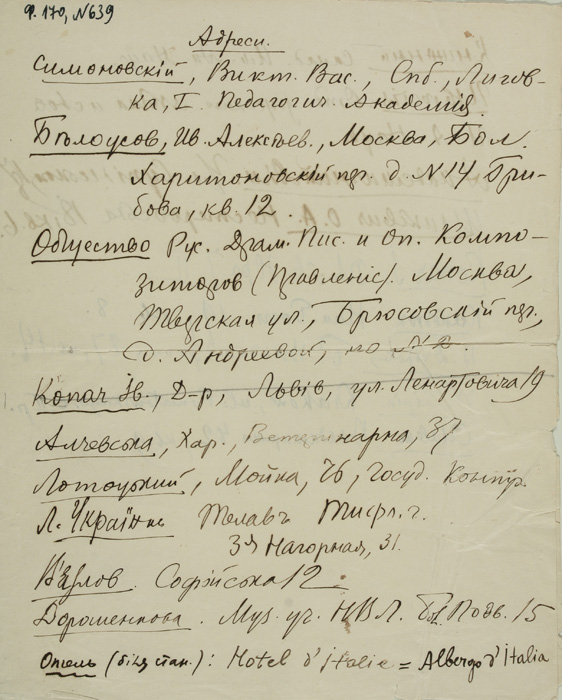 Ф. 170, №639
Адреси.
Симоновскій, Викт. Вас., Спб., Лигов-
ка, I. Педагогич. Академія.
Бѣлоусов, Ив. Алексѣев., Москва, Бол.
Харитоновскій пер. д. N 14 Гри-
бова, кв. 12.
Общество Рус. Драм. Пис. и Оп. Компо-
зиторов (Правленіе). Москва,
Тверская ул., Брюсовскій пер.,
д. Андреевой,
Копач Ів., Д-р, Львів, ул. Ленартовича 19
Алчевська, Хар., Ветеринарна, 37
Лотоцький, Мойка, 76, Госуд. Контр.
Л. Українка Телавъ Тифл. г.
3я Нагорная, 31.
Козлов. Софійська 12.
Дорошенкова. Муз. уч. Н В Л. Подв. 15
Отель (біля стан.): Hotel d'Italie = Albergo d'Italia